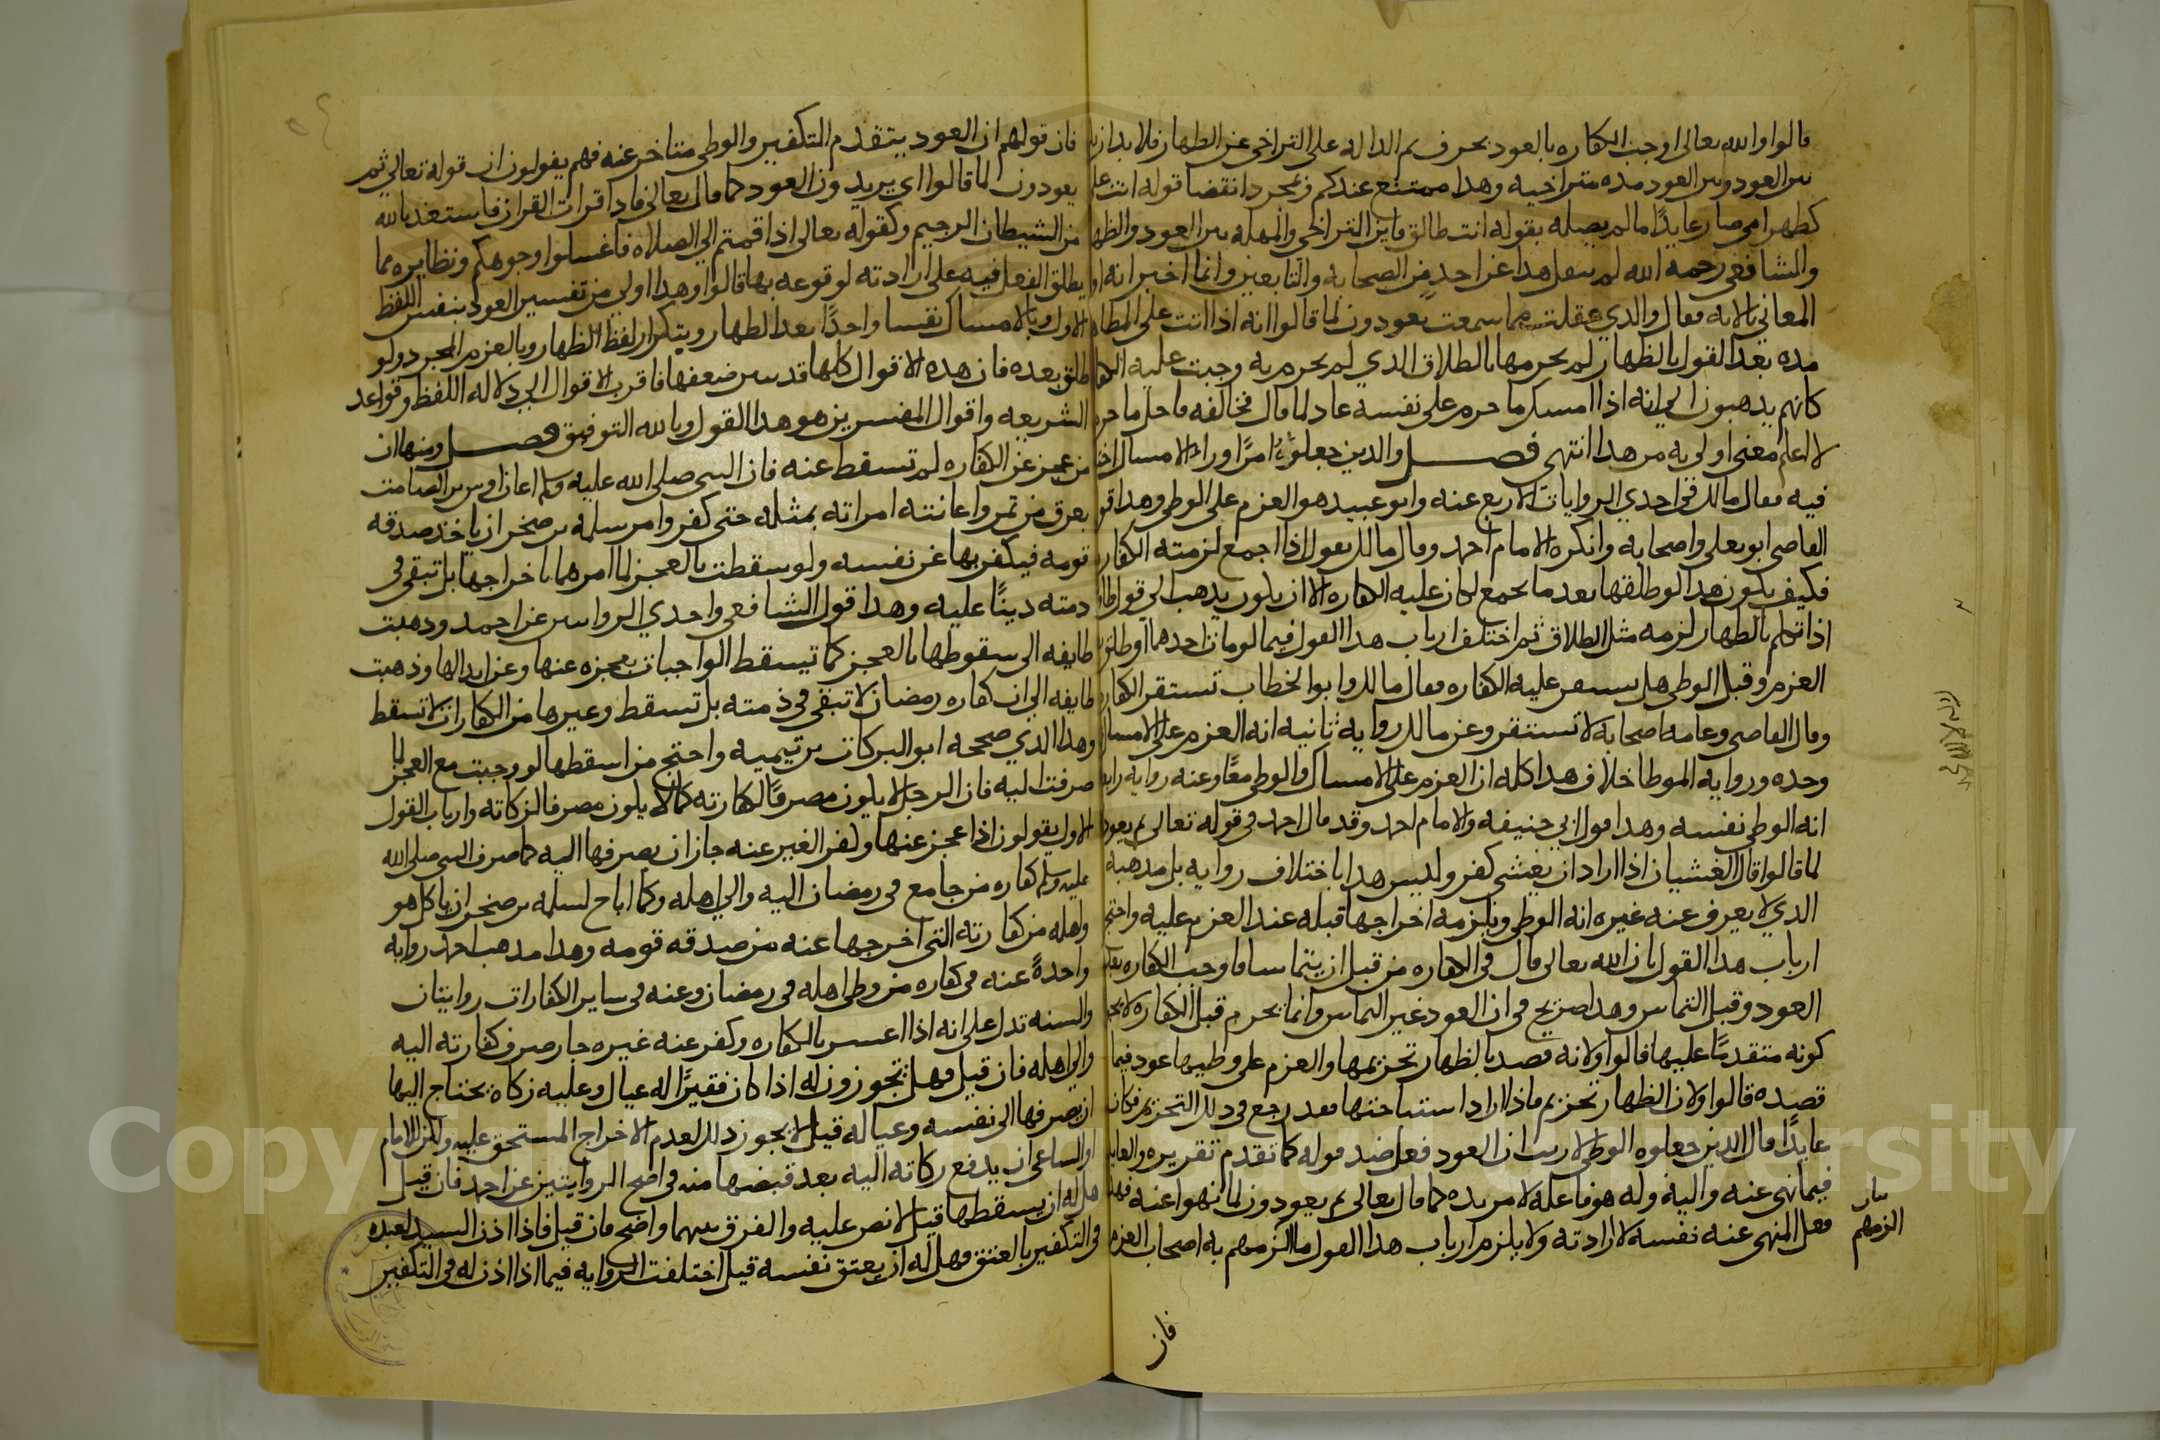 قالوا والله تعالى اوجب الكفاره بالعود بحرف ثم الداله على التراخي عن الظهار فلا بد ان
بين العود وبين العود مده متراخيه وهذا ممتنع عندكم فبمجرد انقضا قوله انت علي
كظهر امي صار عايدًا ما لم يصله بقوله انت طالق فاين التراخي والمهله بين العود والظهار
والشافعي رحمه الله لم ينقل هذا عن احدٍ من الصحابه والتابعين وانما اخبر انه
المعاني بالايه فقال والذي عقلت مما سمعت يعودون لما قالوا انه اذا اتت على المظاهر
مده بعد القول بالظهار لم يحرمها بالطلاق الذي لم يحرم به وجبت عليه
كانهم يذهبون الى انه اذا امسك ما حرم على نفسه عاد لما قال فخالفه فاحل ما حرم
لا اعلم معنى اولى به من هذا انتهى فصل والذين جعلوه امرًا ورا الامساك
فيه فقال مالك في احدي الروايات الاربع عنه وابو عبيد هو العزم على الوطي وهذا
القاضي ابو يعلى واصحابه وانكره الامام احمد وقال مالك يقول اذا اجمع لزمته الكفاره
فكيف يكون هذا لو طلقها بعد ما يجمع اكان عليه الكفاره الا ان يكون يذهب الى قول
اذا تكلم بالظهار لزمه مثل الطلاق ثم اختلف ارباب هذا القول فيما لو مات احدهما او طلق
العزم وقبل الوطي هل يستقر عليه الكفاره فقال مالك وابو الخطاب تستقر الكفاره
وقال القاضي وعامه اصحابه لا تستقر وعن مالك روايه ثانيه انه العزم على الامساك
وحده وروايه الموطا خلاف هذا كله ان العزم على الامساك والوطي معًا وعنه روايه رابعه
انه الوطي نفسه وهذا قول ابي حنيفه والامام احمد وقد قال احمد في قوله تعالى ثم يعودون
لما قالوا قال الغشيان اذا اراد ان يغشى كفر وليس هذا باختلاف روايه بل مذهبه
الذي لا يعرف عنه غيره انه الوطي ويلزمه اخراجها قبله عند العزم عليه واحتج
ارباب هذا القول بان الله تعالى قال في الكفاره من قبل ان يتماسا فاوجب الكفاره بعد
العود وقبل التماس وهذا صريح في ان العود غير التماس وانما يحرم قبل الكفاره لا يجوز
كونه متقدمًا عليها قالوا ولانه قصد بالظهار تحريمها والعزم على وطيها عود فيما
قصده قالوا ولان الظهار تحريم فاذا اراد استباحتها فقد رجع في ذلك التحريم فكان
عايدًا قال الذين جعلوه الوطي لا ريب ان العود فعل ضد قوله كما تقدم تقريره والعايد
فيما نهى عنه واليه وله هو فاعله لا مريده كما قال تعالى ثم يعودون لما نهوا عنه فهذا
فعل المنهي عنه نفسه لا ارادته ولا يلزم ارباب هذا القول ما الزمهم به اصحاب العزم
بيان
الزمهم
فان
فان قولهم ان العود يتقدم التكفير والوطي متاخر عنه فهم يقولون ان قوله تعالى ثم
يعودون لما قالوا اي يريدون العود كما قال تعالى فاذا قرات القران فاستعذ بالله
من الشيطان الرجيم وكقوله تعالى اذا قمتم الى الصلاه فاغسلوا وجوهكم ونظايره مما
يطلق الفعل فيه على ارادته لوقوعه بها قالوا وهذا اولى من تفسير العود بنفس اللفظ
الاول وبالامساك نفسا واحدًا بعد الظهار وبتكرار لفظ الظهار وبالعزم المجرد ولو
طلق بعده فان هذه الاقوال كلها قد تبين ضعفها فاقرب الاقوال الى دلاله اللفظ وقواعد
الشريعه واقوال المفسرين هو هذا القول وبالله التوفيق فصل ومنها ان
من عجز عن الكفاره لم تسقط عنه فان النبي صلى الله عليه وسلم اعان اوس بن الصامت
بعرق من تمر واعانته امراته بمثله حتى كفر وامر سلمه بن صخر ان ياخذ صدقه
قومه فيكفر بها عن نفسه ولو سقطت بالعجز لما امرهما باخراجها بل تبقى في
ذمته دينًا عليه وهذا قول الشافعي واحدي الروايتين عن احمد وذهبت
طايفه الى سقوطها بالعجز كما تسقط الواجبات بعجزه عنها وعن ابدالها وذهبت
طايفه الى ان كفاره رمضان لا تبقى في ذمته بل تسقط وغيرها من الكفارات لا تسقط
وهذا الذي صححه ابو البركات بن تيميه واحتج من اسقطها لو وجبت مع العجز لما
صرفت اليه فان الرجل لا يكون مصرفًا لكفارته كما لا يكون مصرفا لزكاته وارباب القول
الاول يقولون اذا عجز عنها وكفر الغير عنه جاز ان يصرفها اليه كما صرف النبي صلى الله
عليه وسلم كفاره من جامع في رمضان اليه والى اهله وكما اباح لسلمه بن صخر ان ياكل هو
واهله من كفارته التي اخرجها عنه من صدقه قومه وهذا مذهب احمد روايه
واحدةً عنه في كفاره من وطي اهله في رمضان وعنه في ساير الكفارات روايتان
والسنه تدل على انه اذا اعسر بالكفاره وكفر عنه غيره جاز صرف كفارته اليه
والى اهله فان قيل فهل تجوزون له اذا كان فقيرًا له عيال وعليه زكاه يحتاج اليها
ان يصرفها الى نفسه وعياله قيل لا يجوز ذلك لعدم الاخراج المستحق عليه ولكن للامام
او الساعي ان يدفع زكاته اليه بعد قبضها منه في اصح الروايتين عن احمد فان قيل
هل له ان يسقطها قيل لا نص عليه والفرق بينهما واضح فان قيل فاذا اذن السيد لعبده
في التكفير بالعتق فهل له ان يعتق نفسه قيل اختلفت الروايه فيما اذا اذن له في التكفير
Copy
ersity